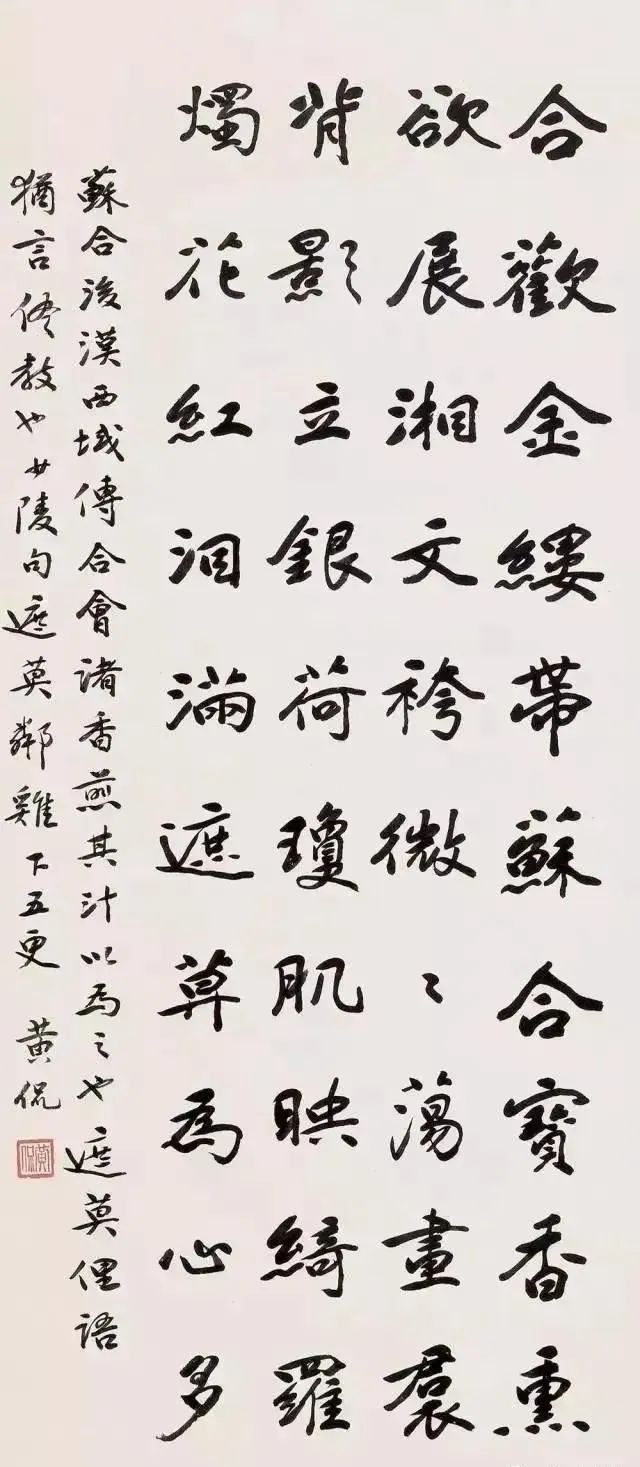 合歡金縷帶蘇合寶香熏
欲展湘文袴微〻蕩畫裠
背影立銀荷瓊肌映綺羅
燭花紅洇滿遮莫為心多
蘇合後漢西域傳合會諸香煎其汁以為之也遮莫俚語
猶言儘教也少陵句遮莫鄰雞下五更 黃侃
黃侃